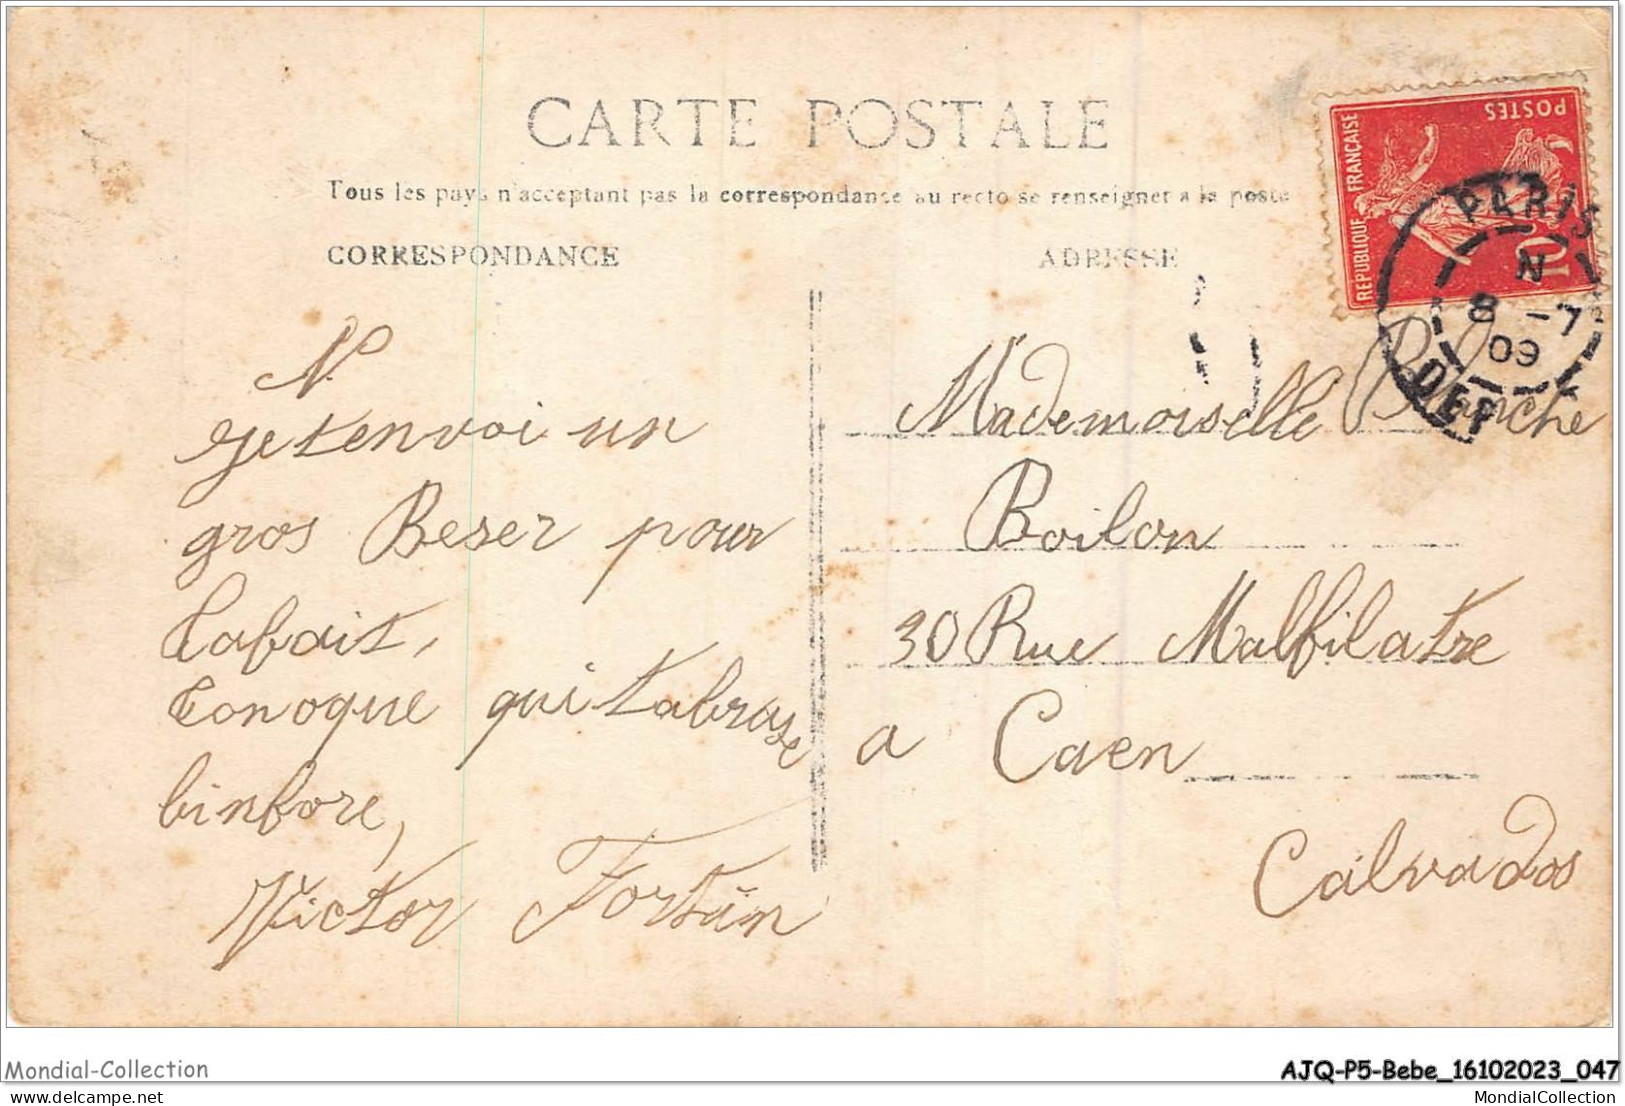 CARTE POSTALE
Tous les pays n'acceptant pas la correspondance au recto se renseigner a la poste
CORRESPONDANCE
ADRESSE
REPUBLIQUE FRANÇAISE
POSTES
10
PARIS
N
8 -7
09
DEP
N.
Je tenvoi un
gros Beser pour
tafait,
tonoque qui tabrase
binfore,
Victor Fortin
Mademoiselle Blanche
Boilon
30 Rue Malfilatre
a Caen
Calvados
Mondial-Collection
AJQ-P5-Bebe_16102023_047
MondialCollection